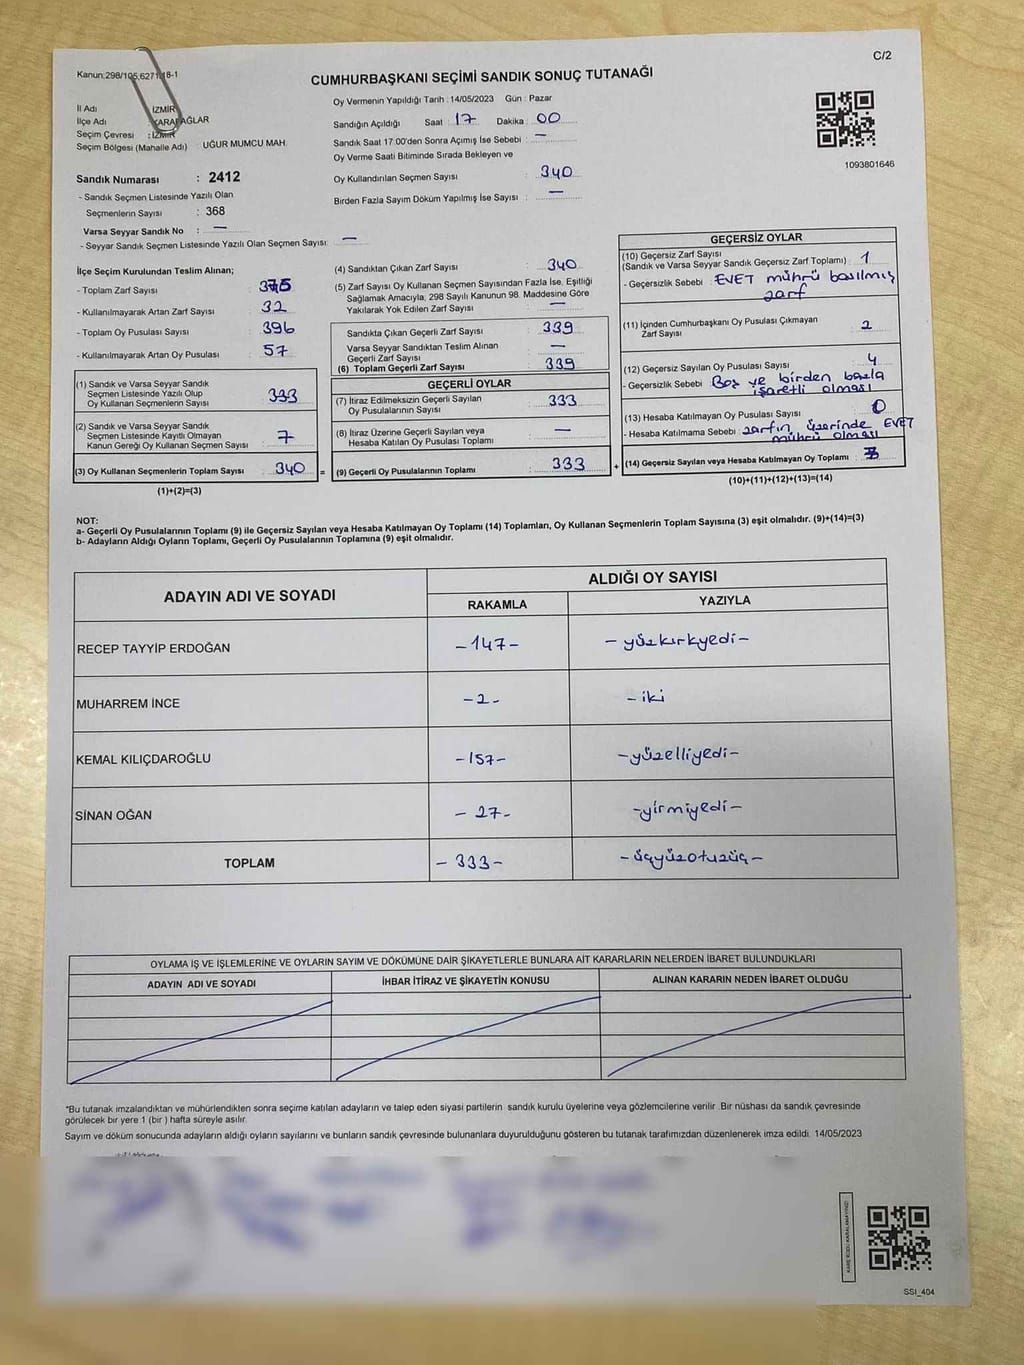 C/2
Kanun:298/105,6271,18-1
CUMHURBAŞKANI SEÇİMİ SANDIK SONUÇ TUTANAĞI
İl Adı : İZMİR
İlçe Adı : KARABAĞLAR
Seçim Çevresi : İZMİR
Seçim Bölgesi (Mahalle Adı) : UĞUR MUMCU MAH.
Sandık Numarası : 2412
- Sandık Seçmen Listesinde Yazılı Olan
Seçmenlerin Sayısı : 368
Varsa Seyyar Sandık No : —
- Seyyar Sandık Seçmen Listesinde Yazılı Olan Seçmen Sayısı: —
Oy Vermenin Yapıldığı Tarih : 14/05/2023 Gün : Pazar
Sandığın Açıldığı Saat : 17 Dakika : 00
Sandık Saat 17:00'den Sonra Açımış İse Sebebi : —
Oy Verme Saati Bitiminde Sırada Bekleyen ve
Oy Kullandırılan Seçmen Sayısı : 340
Birden Fazla Sayım Döküm Yapılmış İse Sayısı : —
1093801646
İlçe Seçim Kurulundan Teslim Alınan;
- Toplam Zarf Sayısı : 375
- Kullanılmayarak Artan Zarf Sayısı : 32
- Toplam Oy Pusulası Sayısı : 396
- Kullanılmayarak Artan Oy Pusulası : 57
(1) Sandık ve Varsa Seyyar Sandık
Seçmen Listesinde Yazılı Olup
Oy Kullanan Seçmenlerin Sayısı : 333
(2) Sandık ve Varsa Seyyar Sandık
Seçmen Listesinde Kayıtlı Olmayan
Kanun Gereği Oy Kullanan Seçmen Sayısı : 7
(3) Oy Kullanan Seçmenlerin Toplam Sayısı : 340 =
(1)+(2)=(3)
(4) Sandıktan Çıkan Zarf Sayısı : 340
(5) Zarf Sayısı Oy Kullanan Seçmen Sayısından Fazla İse, Eşitliği
Sağlamak Amacıyla, 298 Sayılı Kanunun 98. Maddesine Göre
Yakılarak Yok Edilen Zarf Sayısı : —
Sandıkta Çıkan Geçerli Zarf Sayısı : 339
Varsa Seyyar Sandıktan Teslim Alınan
Geçerli Zarf Sayısı : —
(6) Toplam Geçerli Zarf Sayısı : 339
GEÇERLİ OYLAR
(7) İtiraz Edilmeksizin Geçerli Sayılan
Oy Pusulalarının Sayısı : 333
(8) İtiraz Üzerine Geçerli Sayılan veya
Hesaba Katılan Oy Pusulası Toplamı : —
(9) Geçerli Oy Pusulalarının Toplamı : 333 +
GEÇERSİZ OYLAR
(10) Geçersiz Zarf Sayısı
(Sandık ve Varsa Seyyar Sandık Geçersiz Zarf Toplamı) : 1
- Geçersizlik Sebebi : EVET mührü basılmış
zarf
(11) İçinden Cumhurbaşkanı Oy Pusulası Çıkmayan
Zarf Sayısı : 2
(12) Geçersiz Sayılan Oy Pusulası Sayısı : 4
- Geçersizlik Sebebi : Boş ve birden fazla
işaretli olması
(13) Hesaba Katılmayan Oy Pusulası Sayısı : 0
- Hesaba Katılmama Sebebi : zarfın üzerinde EVET
mührü olması
(14) Geçersiz Sayılan veya Hesaba Katılmayan Oy Toplamı :
(10)+(11)+(12)+(13)=(14)
NOT:
a- Geçerli Oy Pusulalarının Toplamı (9) ile Geçersiz Sayılan veya Hesaba Katılmayan Oy Toplamı (14) Toplamları, Oy Kullanan Seçmenlerin Toplam Sayısına (3) eşit olmalıdır. (9)+(14)=(3)
b- Adayların Aldığı Oyların Toplamı, Geçerli Oy Pusulalarının Toplamına (9) eşit olmalıdır.
ADAYIN ADI VE SOYADI
ALDIĞI OY SAYISI
RAKAMLA YAZIYLA
RECEP TAYYİP ERDOĞAN -147- -yüzkırkyedi-
MUHARREM İNCE -2- -iki
KEMAL KILIÇDAROĞLU -157- -yüzelliyedi-
SİNAN OĞAN -27- -yirmiyedi-
TOPLAM -333- -üçyüzotuzüç-
OYLAMA İŞ VE İŞLEMLERİNE VE OYLARIN SAYIM VE DÖKÜMÜNE DAİR ŞİKAYETLERLE BUNLARA AİT KARARLARIN NELERDEN İBARET BULUNDUKLARI
ADAYIN ADI VE SOYADI İHBAR İTİRAZ VE ŞİKAYETİN KONUSU ALINAN KARARIN NEDEN İBARET OLDUĞU
*Bu tutanak imzalandıktan ve mühürlendikten sonra seçime katılan adayların ve talep eden siyasi partilerin sandık kurulu üyelerine veya gözlemcilerine verilir. Bir nüshası da sandık çevresinde
görülecek bir yere 1 (bir ) hafta süreyle asılır.
Sayım ve döküm sonucunda adayların aldığı oyların sayılarını ve bunların sandık çevresinde bulunanlara duyurulduğunu gösteren bu tutanak tarafımızdan düzenlenerek imza edildi. 14/05/2023
KARE KODU KARALAMAYINIZ!
SSI_404